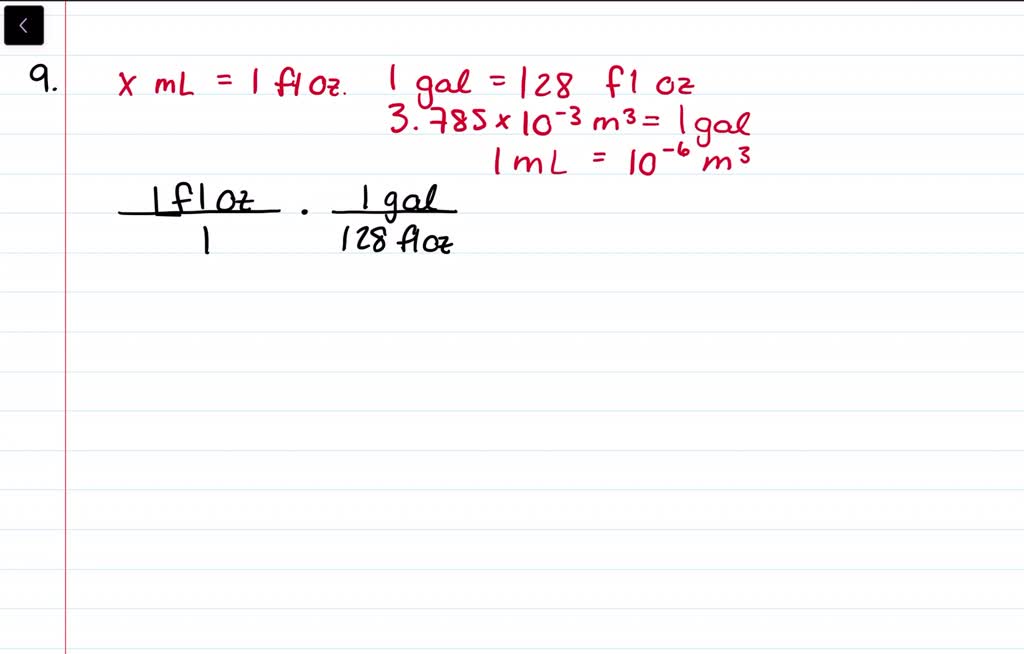 9. x mL = 1 fl oz. 1 gal = 128 fl oz
3.785 x 10⁻³ m³ = 1 gal
1 mL = 10⁻⁶ m³
1 fl oz / 1 · 1 gal / 128 fl oz